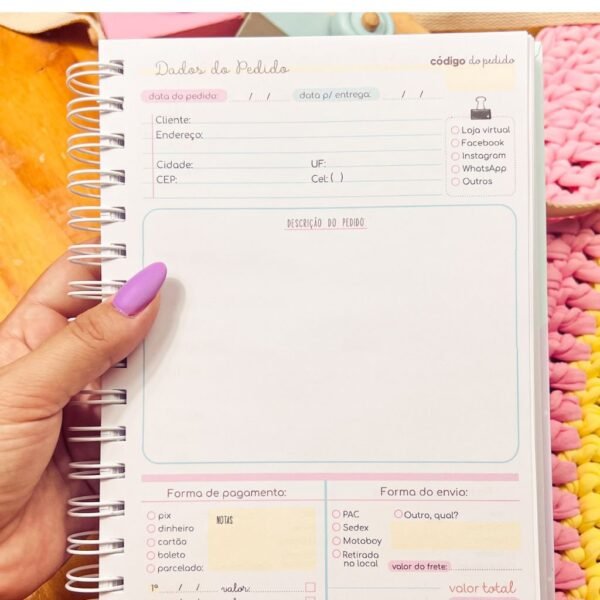 Dados do Pedido
código do pedido
data do pedido: / / data p/ entrega: / /
Cliente:
Endereço:
Cidade: UF:
CEP: Cel: ( )
Loja virtual
Facebook
Instagram
WhatsApp
Outros
DESCRIÇÃO DO PEDIDO
Forma de pagamento:
pix
dinheiro
cartão
boleto
parcelado:
NOTAS
1ª / / valor:
Forma do envio:
PAC
Sedex
Motoboy
Retirada
no local
Outro, qual?
valor do frete:
valor total